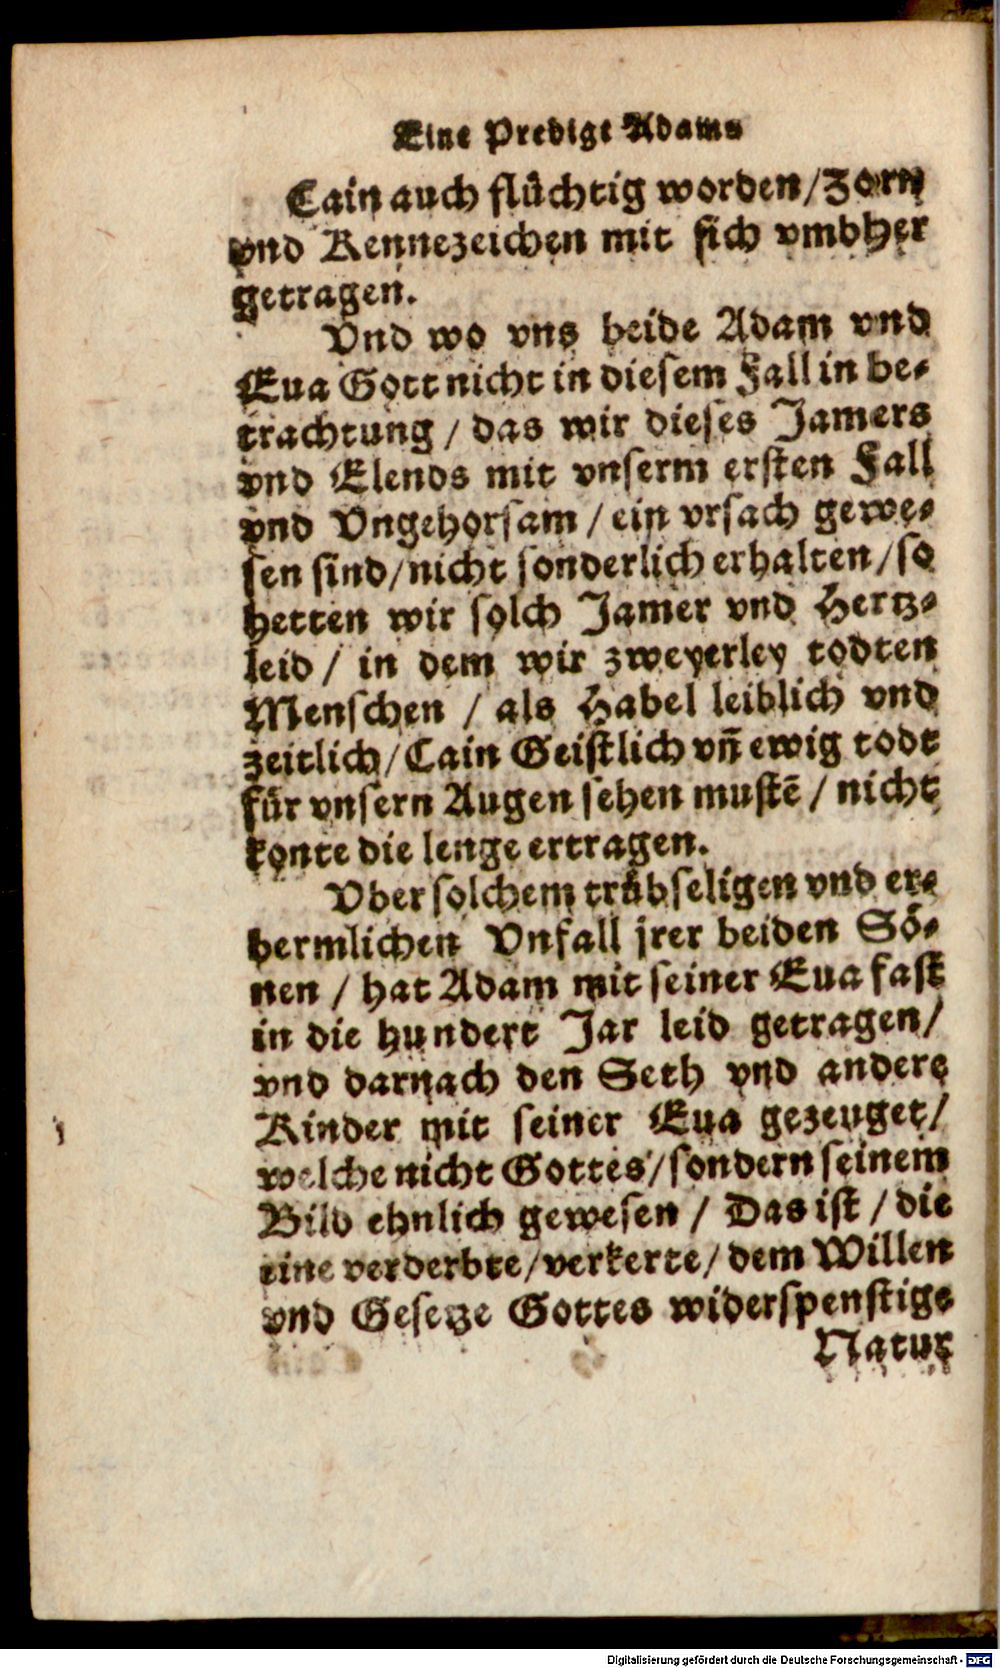 Eine Predigt Adams
Cain auch flüchtig worden / Zorn
vnd Kennezeichen mit sich vmbher
getragen.
Vnd wo vns beide Adam vnd
Eua Gott nicht in diesem Fall in be-
trachtung / das wir dieses Jamers
vnd Elends mit vnserm ersten Fall
vnd Vngehorsam / ein vrsach gewe-
sen sind / nicht sonderlich erhalten / so
hetten wir solch Jamer vnd Hertz-
leid / in dem wir zweyerley todten
Menschen / als Habel leiblich vnd
zeitlich / Cain Geistlich vñ ewig todt
für vnsern Augen sehen mustē / nicht
konte die lenge ertragen.
Vber solchem trübseligen vnd er-
bermlichen Vnfall jrer beiden Sö-
nen / hat Adam mit seiner Eua fast
in die hundert Jar leid getragen /
vnd darnach den Seth vnd andere
Kinder mit seiner Eua gezeuget /
welche nicht Gottes / sondern seinem
Bild ehnlich gewesen / Das ist / die
eine verderbte / verkerte / dem Willen
vnd Gesetze Gottes widerspenstige
Natur
Digitalisierung gefördert durch die Deutsche Forschungsgemeinschaft - DFG